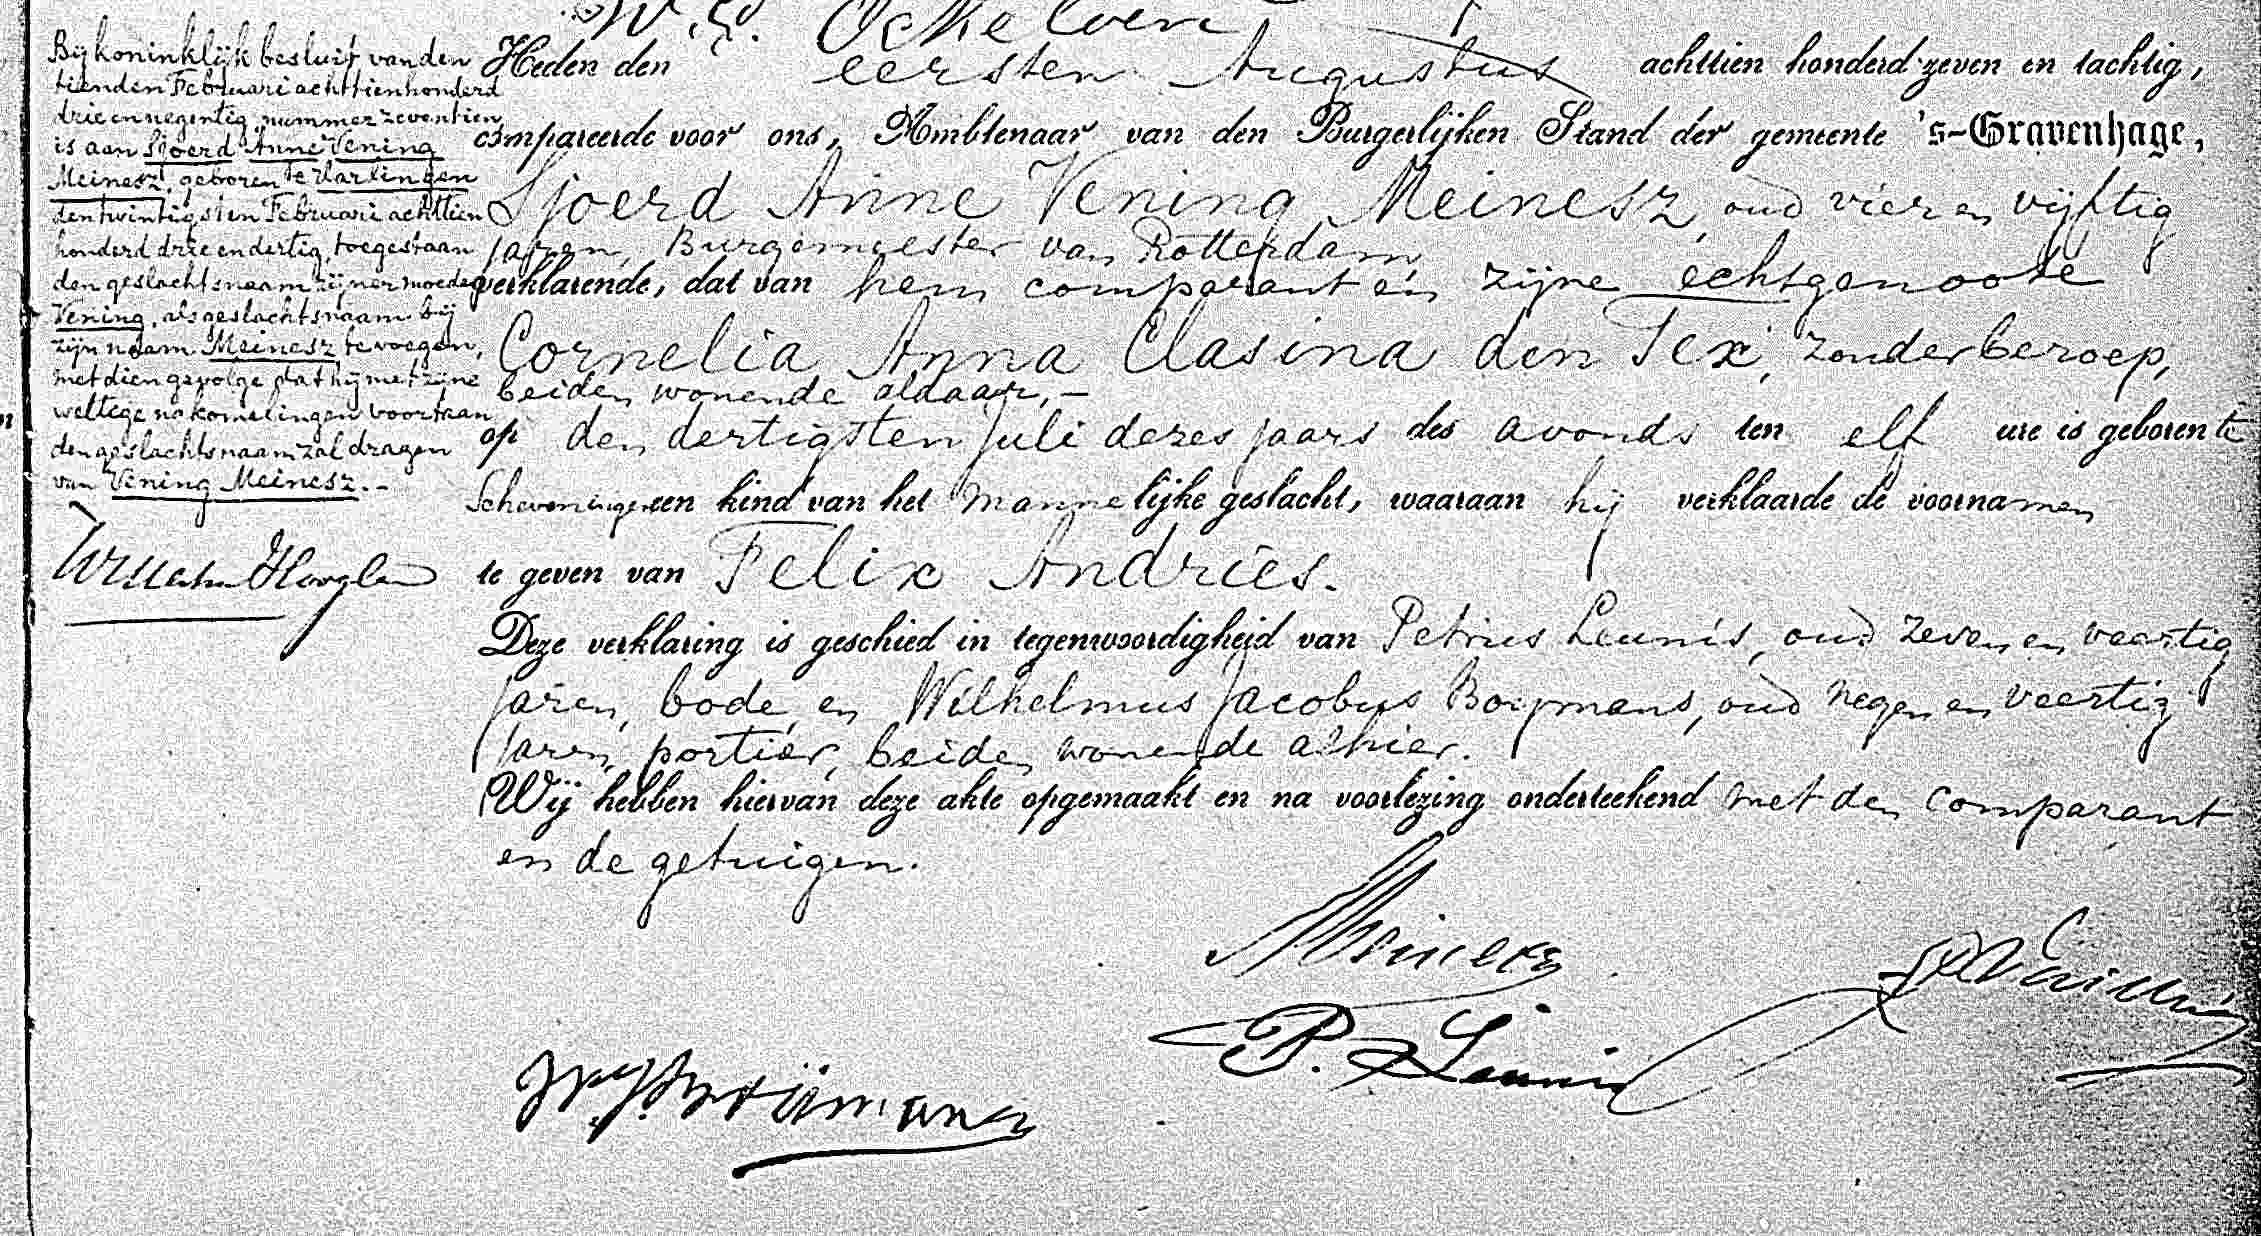 Bij koninklijk besluit van den
tienden Februari achttienhonderd
drie en negentig, nummer zeventien,
is aan Sjoerd Anne Vening
Meinesz, geboren te Harlingen
den twintigsten Februari achttien
honderd drie en dertig, toegestaan
den geslachtsnaam zijner moeder
Vening, als geslachtsnaam bij
zijn naam Meinesz te voegen,
met dien gevolge dat hij met zijne
wettige nakomelingen voortaan
den geslachtsnaam zal dragen
van Vening Meinesz.-
Heden den eersten Augustus achttien honderd zeven en tachtig,
compareerde voor ons, Ambtenaar van den Burgerlijken Stand der gemeente 's-Gravenhage,
Sjoerd Anne Vening Meinesz, oud vier en vijftig
jaren, Burgemeester van Rotterdam,
verklarende, dat van hem comparant en zijne echtgenoote
Cornelia Anna Clasina den Tex, zonder beroep,
beiden wonende aldaar,-
op den dertigsten Juli dezes jaars des avonds ten elf ure is geboren te
Scheveningen een kind van het mannelijke geslacht, waaraan hij verklaarde de voornamen
te geven van Felix Andries.
Deze verklaring is geschied in tegenwoordigheid van Petrus Leunis, oud zeven en veertig
jaren, bode, en Wilhelmus Jacobus Booymans, oud negen en veertig
jaren, portier, beiden wonende alhier.
Wij hebben hiervan deze akte opgemaakt en na voorlezing onderteekend met den comparant
en de getuigen.
Meinesz
P. Leunis